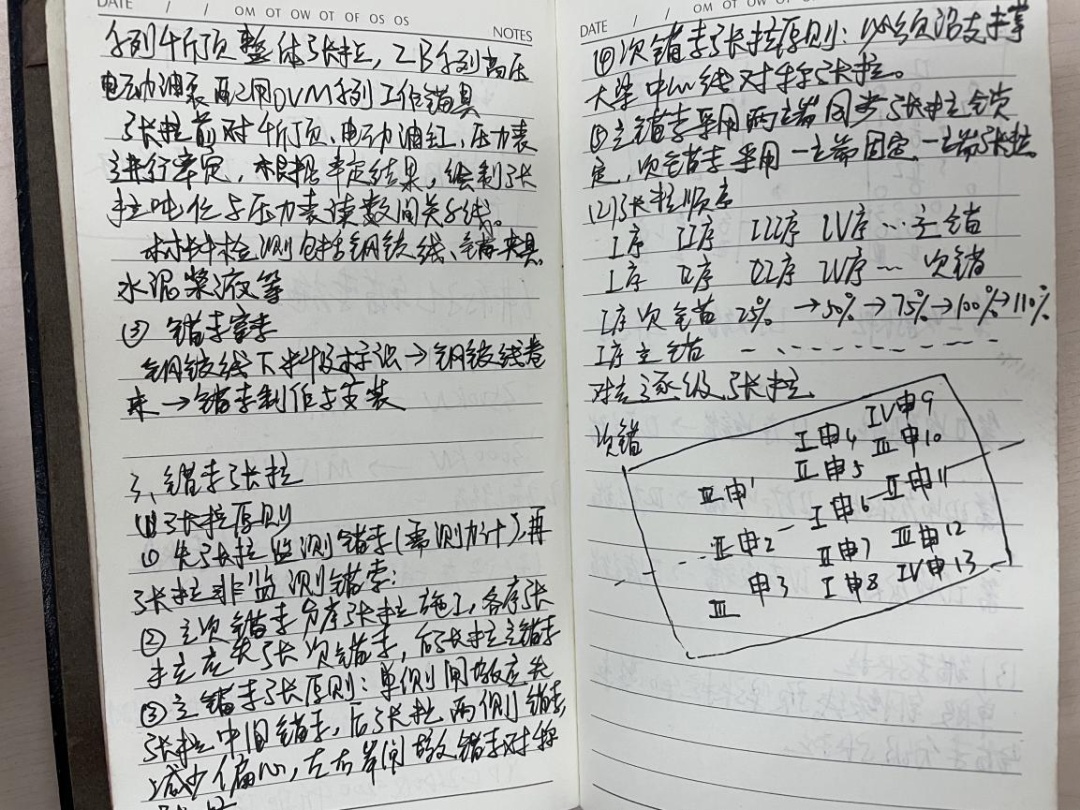 DATE / / OM OT OW OT OF OS OS
NOTES
系列千斤顶整体张拉，ZB系列高压
电动油泵配用OVM系列工作锚具
张拉前对千斤顶、电动油缸、压力表
进行率定，根据率定结果，绘制张
拉吨位与压力表读数间关系线。
材料检测包括钢绞线、锚夹具
水泥浆液等
③ 锚索穿索
钢绞线下料及标识→钢绞线卷
束→锚索制作与安装
三、锚索张拉
(1)张拉原则
① 先张拉监测锚索(需测力计),再
张拉非监测锚索;
② 主次锚索分序张拉施工，各序张
拉应先张次锚索，后张拉主锚索
③ 主锚索张原则：单侧闸墩应先
张拉中间锚索，后张拉两侧锚索
减少偏心，左右岸闸墩锚索对称
DATE / / OM OT OW OT OF OS
④次锚索张拉原则：必须沿支撑
大梁中心线对称张拉。
⑤主锚索采用两端同步张拉锁
定，次锚索采用一端固定一端张拉
(2)张拉顺序
I序 II序 III序 IV序…主锚
I序 II序 III序 IV序… 次锚
I序次锚 25% →50%→75%→100%→110%
I序主锚
对主逐级张拉
次锚
IV申9
I申4 III申10
II申5
III申1 II申11
I申6
II申2 III申12
II申7
申3 I申8 IV申13
III